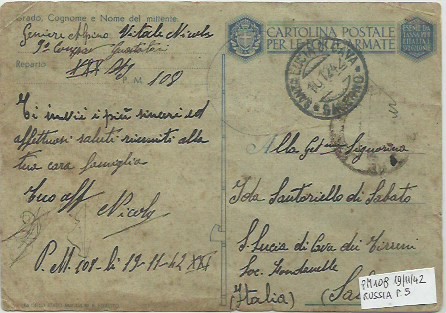 Grado, Cognome e Nome del mittente.
Geniere Alpino Vitale Nicola
9ª Compag. Guastatori
Reparto XXX
P. M. 108
Ti invio i più sinceri ed
affettuosi saluti riuniti alla
tua cara famiglia
Tuo aff
Nicola
P. M. 108 - li 19-11-42 XXI
CARTOLINA POSTALE
PER LE FORZE ARMATE
SANTA LUCIA DI CAVA
10.12.42
SALERNO
Alla Gel. Signorina
Iola Santoriello di Sabato
S. Lucia di Cava dei Tirreni
Loc.
(Italia)
PM 108 19/11/42
RUSSIA P. 5